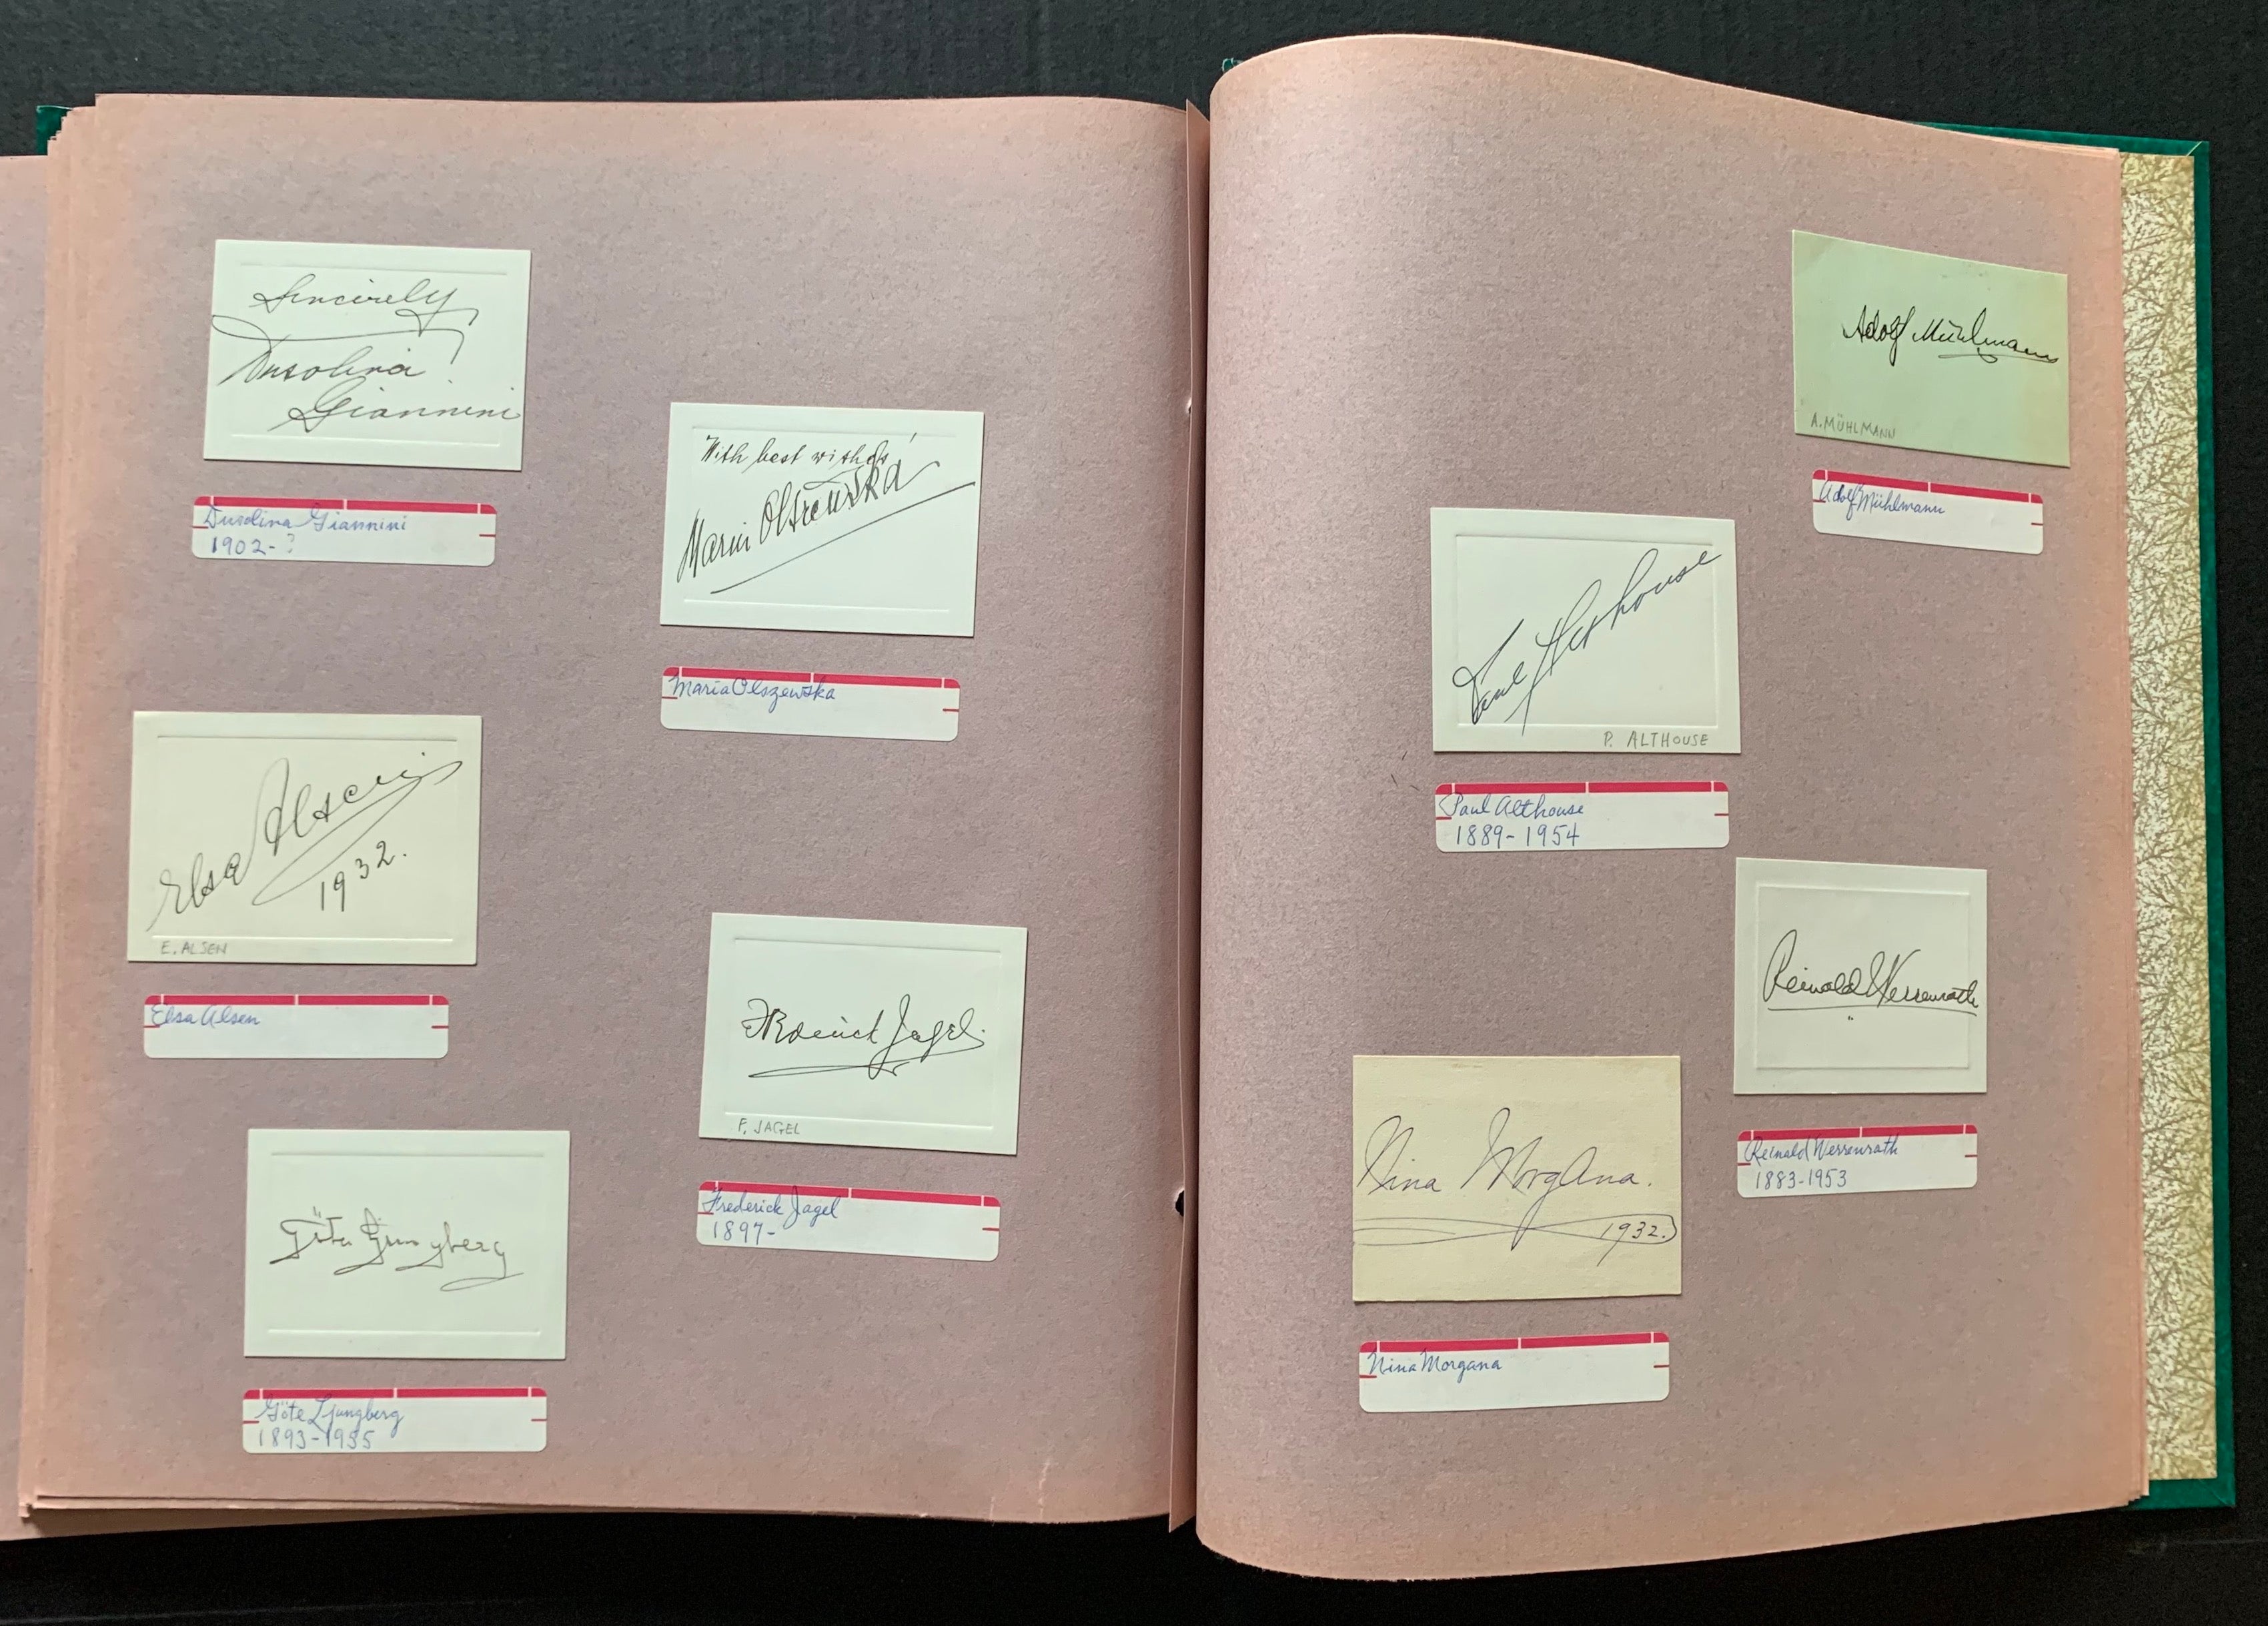 Sincerely
Dusolina
Giannini
Dusolina Giannini
1902-?
With best wishes
Maria Olszewska
Maria Olszewska
Elsa Alsen
1932.
E. ALSEN
Elsa Alsen
Frederick Jagel
F. JAGEL
Frederick Jagel
1897-
Göta Ljungberg
Göte Ljungberg
1893-1955
Adolf Mühlmann
A. MÜHLMANN
Adolf Mühlmann
Paul Althouse
P. ALTHOUSE
Paul Althouse
1889-1954
Reinald Werrenrath
Reinald Werrenrath
1883-1953
Nina Morgana.
1932.
Nina Morgana